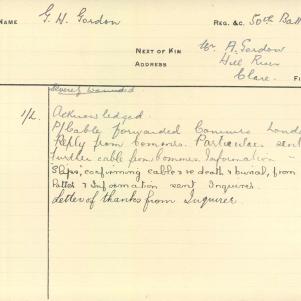 NAME G. H. Gordon REG. &C. 50th Batt
NEXT OF KIN Mr A. Gordon
ADDRESS Hill River
Clare. FI
Severely wounded
1/2. Acknowledged.
P/Cable forwarded Commrs Lond
Reply from Commrs. Particulars sent
Further cable from Commrs Information -
Slips, confirming cable re death & burial, from
& Information sent Inquirer.
Letter of thanks from Inquirer.